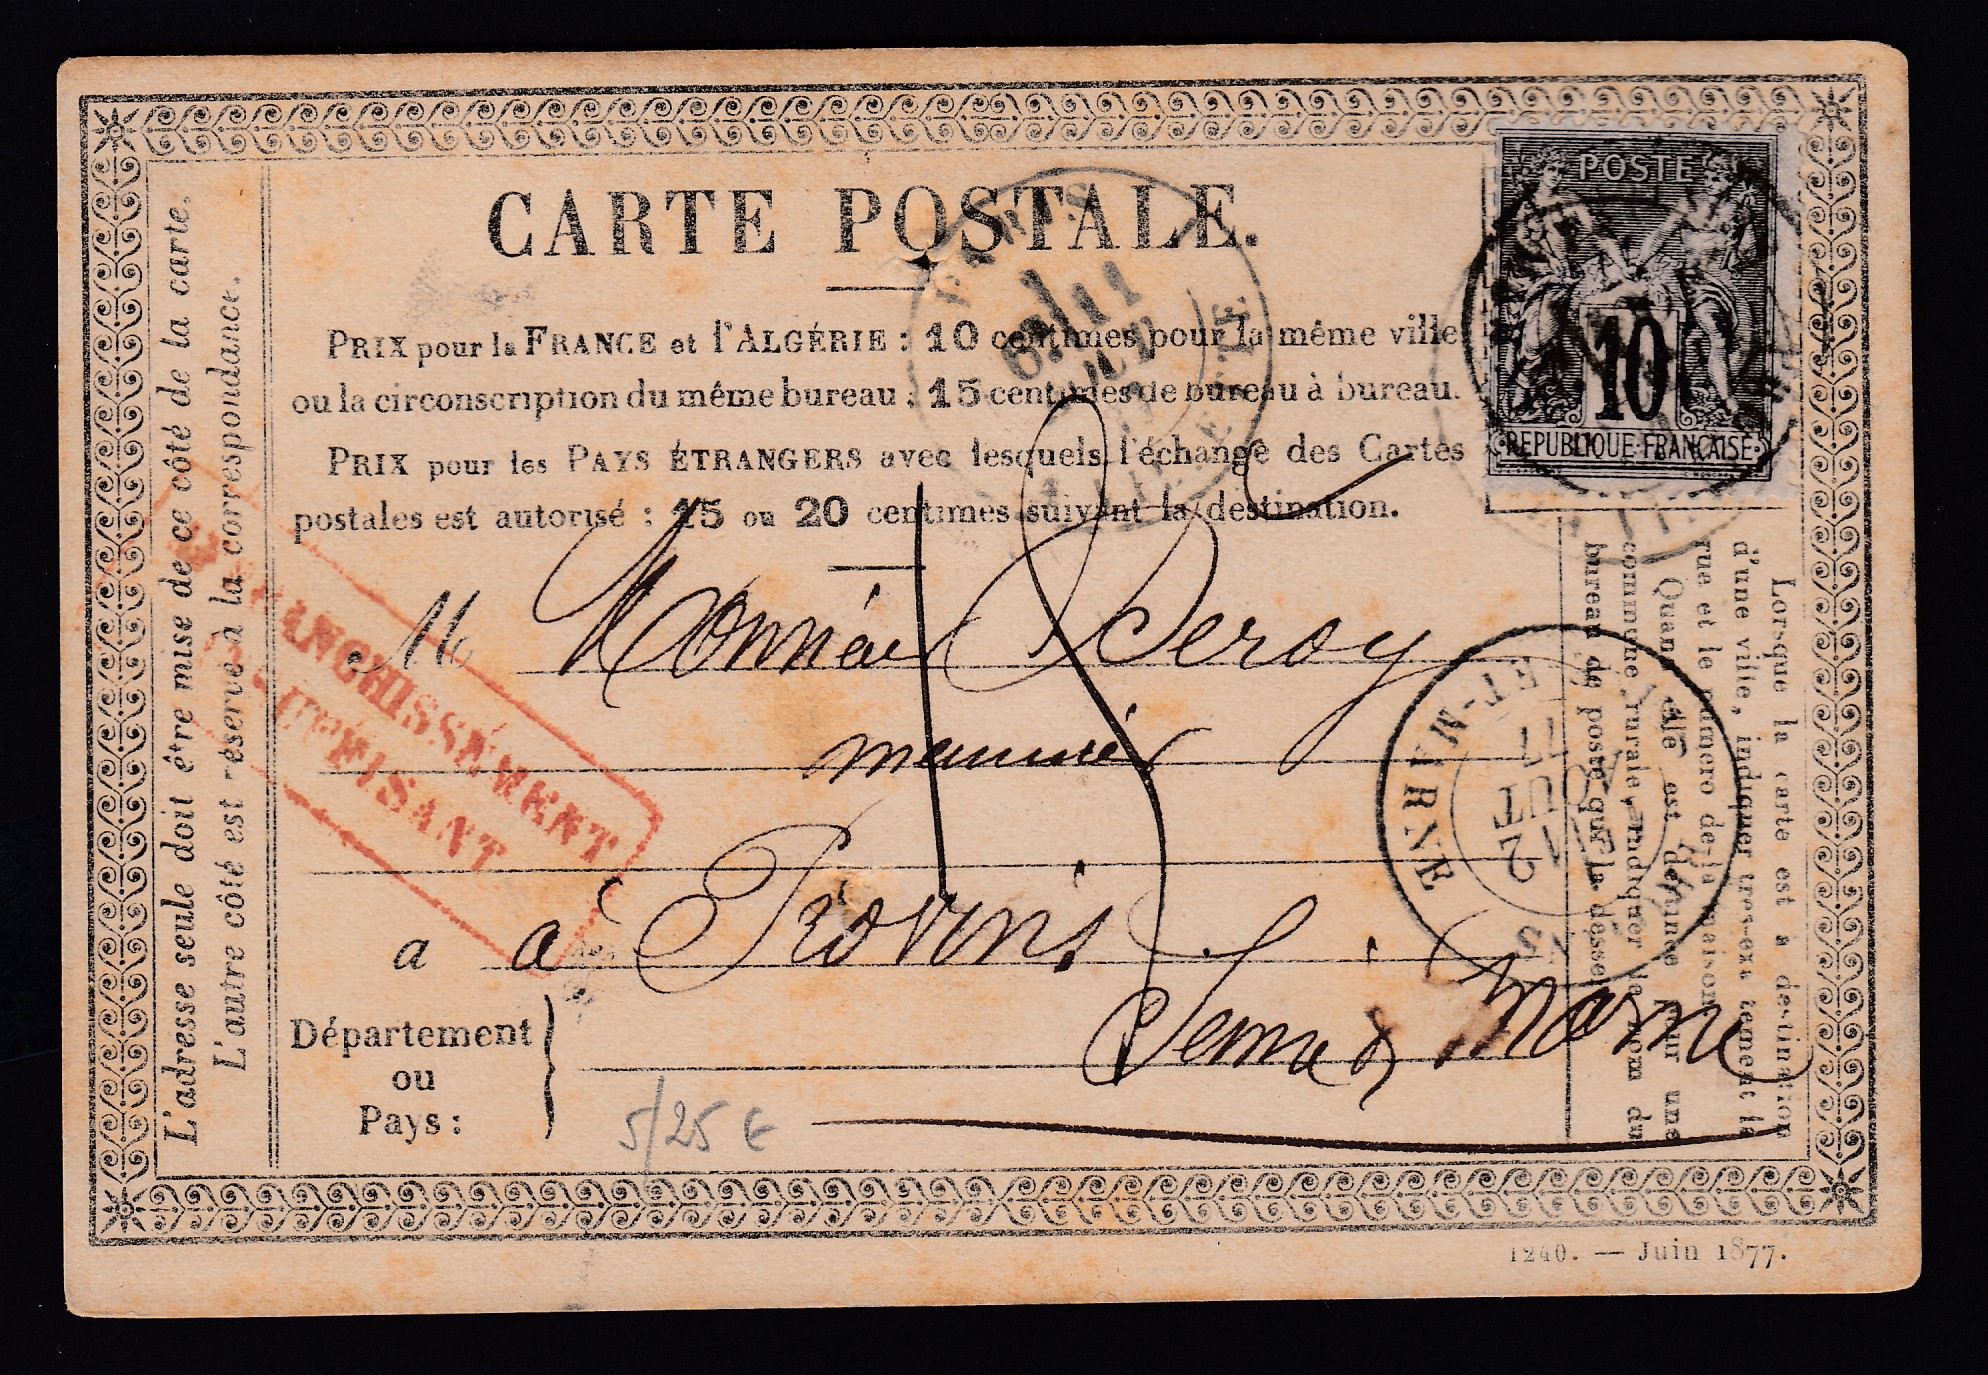 CARTE POSTALE.
PRIX pour la FRANCE et l'ALGÉRIE : 10 centimes pour la même ville
ou la circonscription du même bureau ; 15 centimes de bureau à bureau.
PRIX pour les PAYS ÉTRANGERS avec lesquels l'échange des Cartes
postales est autorisé : 15 ou 20 centimes suivant la destination.
POSTE
10
REPUBLIQUE FRANÇAISE
PARIS
L'adresse seule doit être mise de ce côté de la carte.
L'autre côté est réservé à la correspondance.
AFFRANCHISSEMENT
INSUFFISANT
M Deroy
meunier
15
a à Provins
Seine & Marne
Département
ou
Pays :
ET-MARNE
2
AOUT
77
Lorsque la carte est à destination
d'une ville, indiquer très-exactement la
rue et le numéro de la maison.
Quand elle est destinée pour une
commune rurale, indiquer le nom du
bureau de poste qui la dessert.
5/25 €
1240. — Juin 1877.